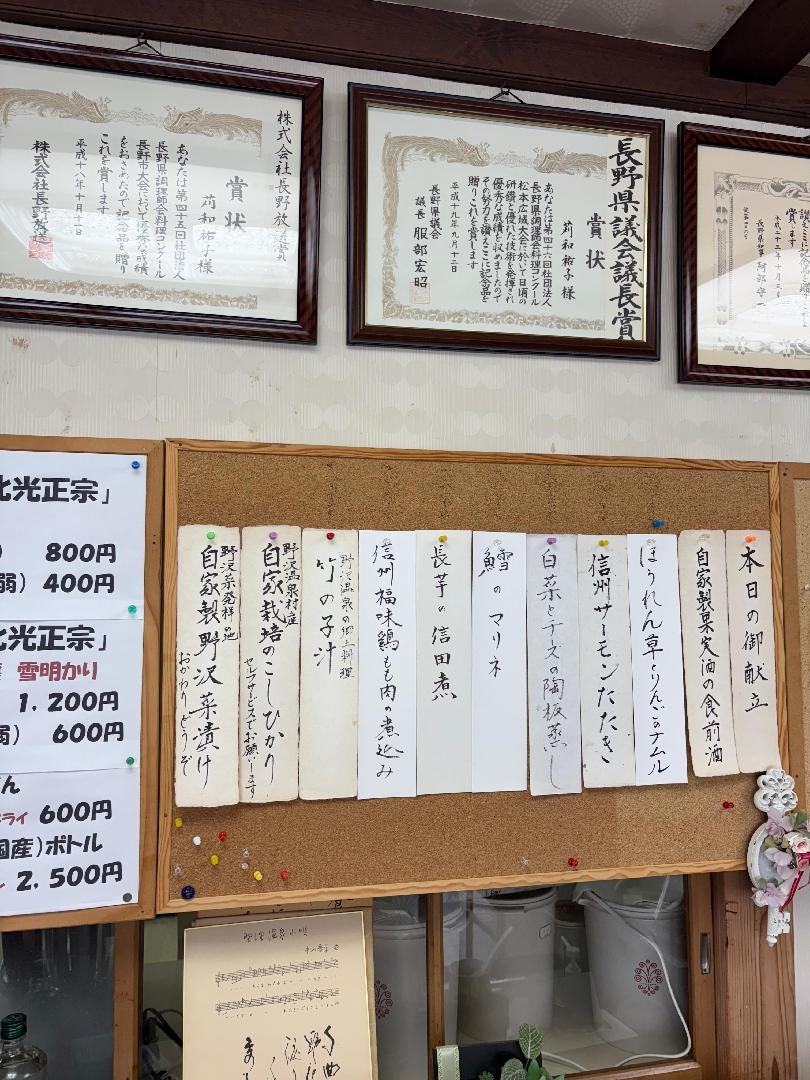 株式会社長野放送賞
賞状
苅和祐子様
あなたは第四十五回社団法人
長野県調理師会料理コンクール
長野市大会において優秀な成績
をおさめたので記念品を贈り
これを賞します
平成十八年十月十一日
株式会社長野放送
長野県議会議長賞
賞状
苅和祐子様
あなたは第四十六回社団法人
長野県調理師会料理コンクール
松本広域大会に於いて日頃の
研鑽と優れた技術を発揮され
優秀な成績を収めましたので
その努力を讃えここに記念品を
贈りこれを賞します
平成十九年九月十二日
長野県議会
議長 服部宏昭
賞します
平成二十三年十月
長野県知事 阿部守一
北光正宗」
800円
弱) 400円
北光正宗」
雪明かり
1.200円
弱) 600円
ライ 600円
国産)ボトル
2.500円
本日の御献立
自家製果実酒の食前酒
ほうれん草とりんごのナムル
信州サーモンたたき
白菜とチーズの陶板蒸し
鱈のマリネ
長芋の信田煮
信州福味鶏もも肉の煮込み
野沢温泉の郷土料理
竹の子汁
野沢温泉村産
自家栽培のこしひかり
セルフサービスでお願いします
野沢菜発祥の地
自家製野沢菜漬け
おかわりどうぞ
野沢温泉小唄